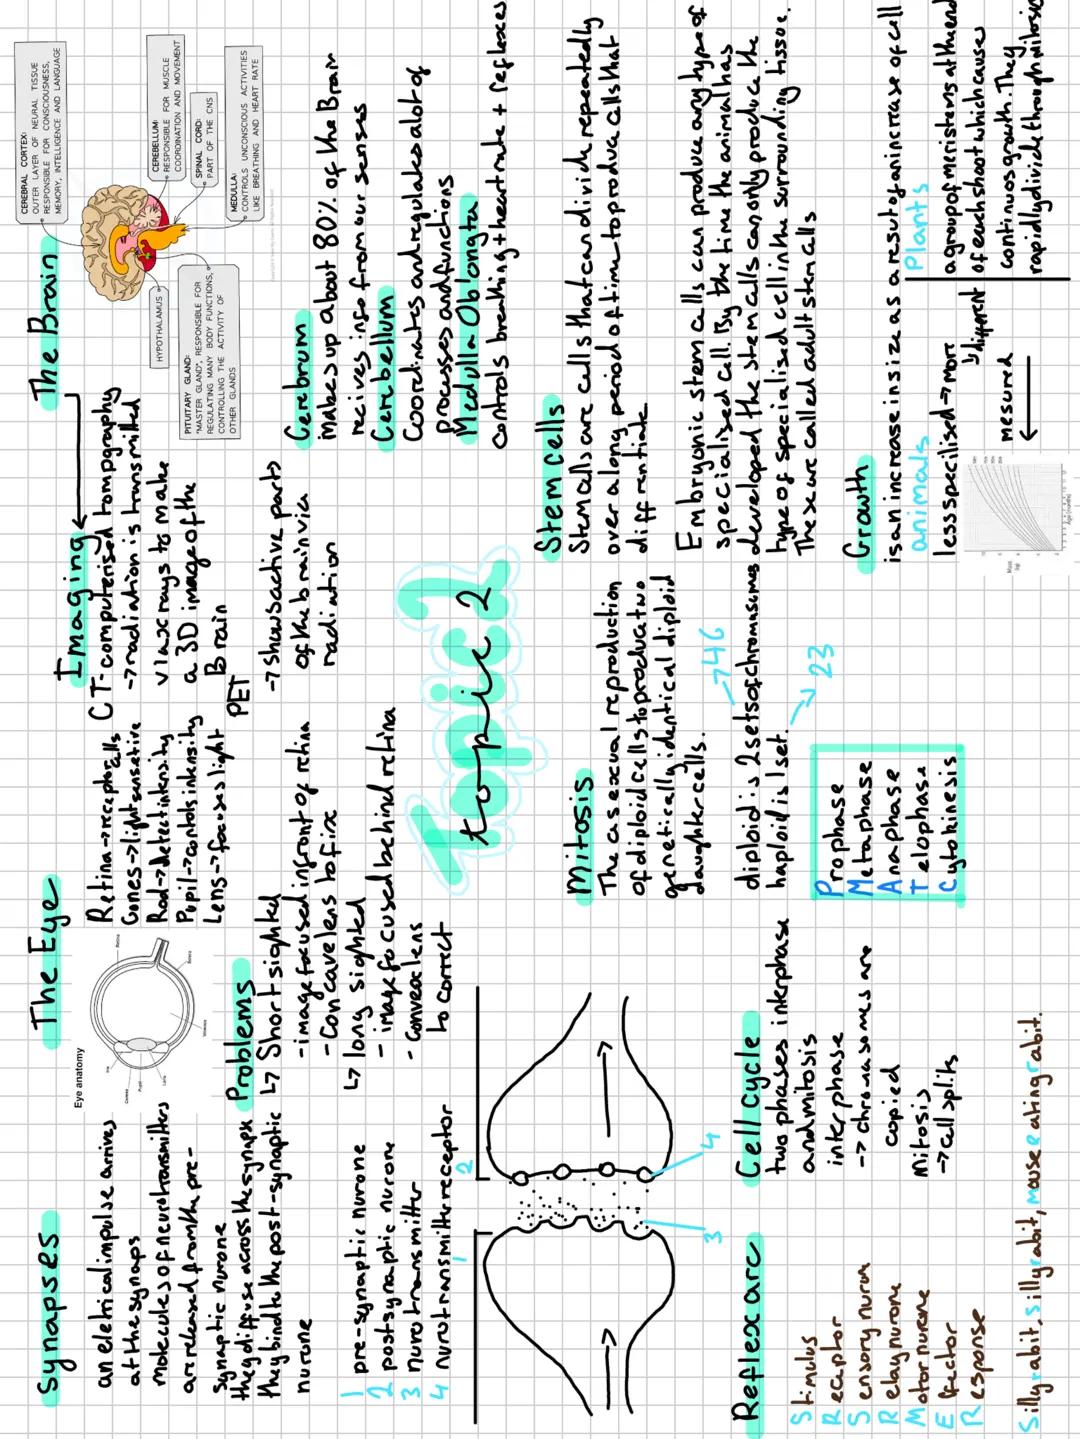 Synapses
an eletrical impulse arrives
at the synaps
molecules of neurotransmitters
are released from the pre-
synaptic nurone
they diffuse across the synaps
they bind to the post-synaptic
nurune
1 pre-synaptic nurone
2 postsynaptic nuron
3 nurotransmitter
4 nurotransmitter receptor
1
2
3
4
The Eye
Eye anatomy
Iris
Cornea
Pupil
Lens
Retina
Vitreous
Retina→receptor cells
Cones→light sensetive
Rod→detect intensity
Pupil→contols intensity
Lens→focuses light
Problems
↳ Short sighted
- image focused infront of retina
- Concave lens to fix
↳ long sighted
- image focused behind retina
- convex lens
to correct
Imaging
CT-computerised tompgraphy
→radiation is transmitted
via x rays to make
a 3D image of the
Brain
PET
→shows active parts
of the brain via
radiation
The Brain
CEREBRAL CORTEX:
OUTER LAYER OF NEURAL TISSUE
RESPONSIBLE FOR CONSCIOUSNESS,
MEMORY, INTELLIGENCE AND LANGUAGE
CEREBELLUM:
RESPONSIBLE FOR MUSCLE
COORDINATION AND MOVEMENT
SPINAL CORD:
PART OF THE CNS
MEDULLA:
CONTROLS UNCONSCIOUS ACTIVITIES
LIKE BREATHING AND HEART RATE
HYPOTHALAMUS
PITUITARY GLAND:
"MASTER GLAND", RESPONSIBLE FOR
REGULATING MANY BODY FUNCTIONS,
CONTROLLING THE ACTIVITY OF
OTHER GLANDS
Cerebrum
makes up about 80% of the Brain
recives info from our senses
Cerebellum
Coordinates and regulates alot of
processes and functions
Medulla Oblongta
controls breathing + heart rate + reflexes
Topic 2
topic 2
Reflex arc
Stimulus
Receptor
Sensory nurun
Relay nurone
Motor nurone
Effector
Response
Silly rabit, silly rabit, mouse eating rabit.
Cell cycle
two phases interphase
and mitosis
interphase
→ chromosomes are
copied
Mitosis
→cell splits
Mitosis
The asexual reproduction
of diploid cells to produce two
genetically identical diploid
daughter cells.
→46
diploid is 2 sets of chromosomes
haploid is 1 set.
→ 23
Prophase
Metaphase
Anaphase
Telophase
Cytokinesis
Stem cells
Stem cells are cells that can divide repeatedly
over a long period of time to produce cells that
diffrentiate
Embryonic stem cells can produce any type of
specialised cell. By the time the animal has
developed the stem cells can only produce the
type of specialised cell in the surrounding tissue.
These are called adult stem cells
Growth
is an increase in size as a resut of an increase of cell
animals
less specilised → more
↳ different
mesured
Mass
(kg)
Age (months)
Plants
a group of meristems at the end
of each shoot which causes
continuos growth. They
rapidly divide through mitosis